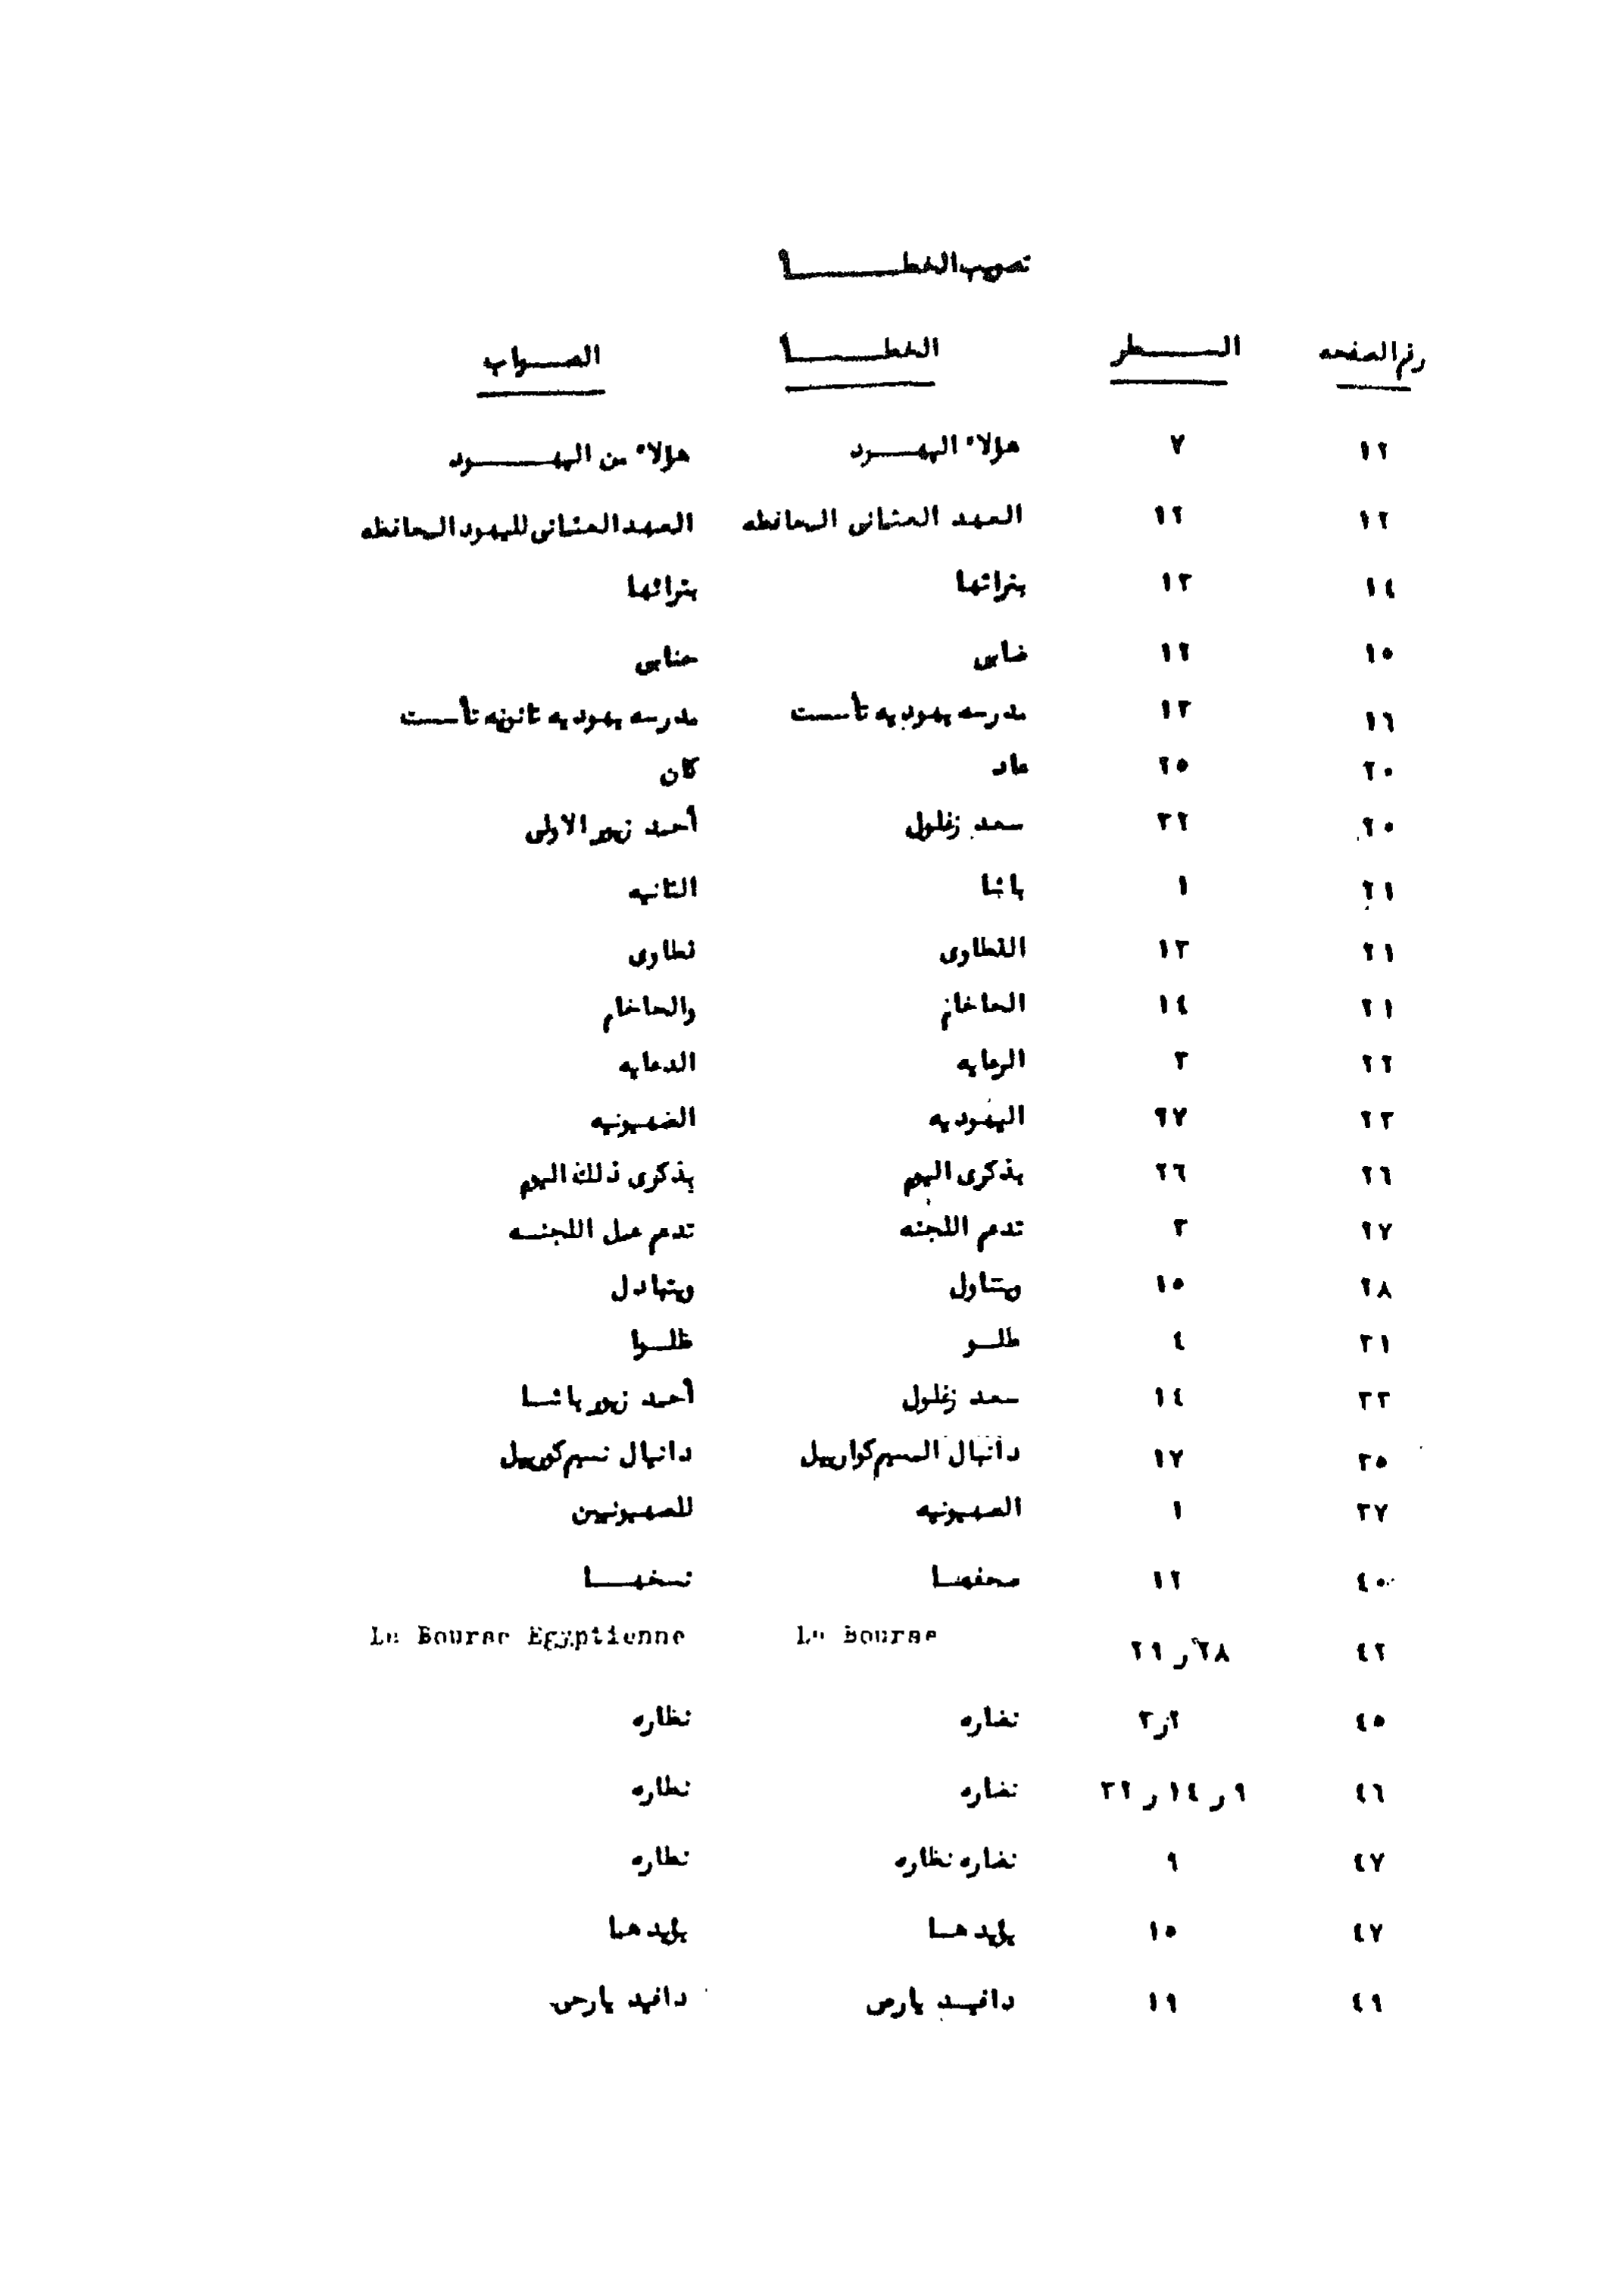 تصويب الخطأ
رقم الصفحه السطر الخطأ الصواب
١٢ ٧ هؤلاء اليهود هؤلاء من اليهود
١٢ ١٢ العهد العثمانى المحافظه العهد العثمانى لليهود المحافظه
١٤ ١٣ بتراثها
١٥ ١٢
١٦ ١٣ مدرسه يهوديه تأسست مدرسه يهوديه ثانويه تأسست
٢٠ ٢٥ عاد كان
٢٠ ٣٢ سعد زغلول أحمد زيور الاولى
٢١ ١ باشا الثانيه
٢١ ١٣ القطاوى قطاوى
٢١ ١٤ الحاخام والحاخام
٢٢ ٣ الرعايه الدعايه
٢٣ ٢٧ اليهوديه الصهيونيه
٢٦ ٢٦ بذكرى اليوم بذكرى ذلك اليوم
٢٧ ٣ تدعم اللجنه تدعم عمل اللجنسه
٢٨ ١٥ ويتناول ويتبادل
٣١ ٤ طلو ظلوا
٣٣ ١٤ سعد زغلول أحمد زيور باشا
٣٥ ١٧ دانيال نسيم كورييل
٣٧ ١ الصهيونيه للصهيونيين
٤٠ ١٢ صحفها نسخها
٤٢ ٢٨ر ٢٩ La Bourse La Bourse Egyptienne
٤٥ ٢ر٣ نضاره نظاره
٤٦ ٩ر ١٤ر ٣٢ نضاره نظاره
٤٧ ٩ نضاره نظاره نظاره
٤٧ ١٥
٤٩ ١٩ دافيد